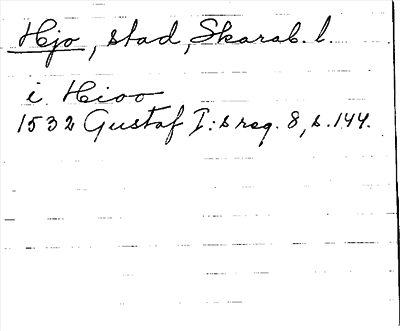 Hjo, stad, Skarab. l.
i Hioo
1532 Gustaf I:s reg. 8, s. 144.